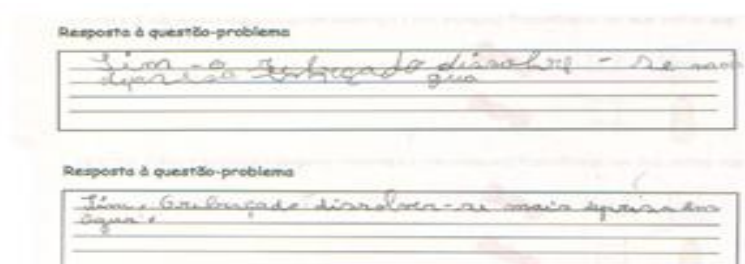 Resposta à questão-problema
Sim - o rebuçado dissolve - se mais
depressa gua
Resposta à questão-problema
Sim. O rebuçado dissolver-se mais depressa em
água.